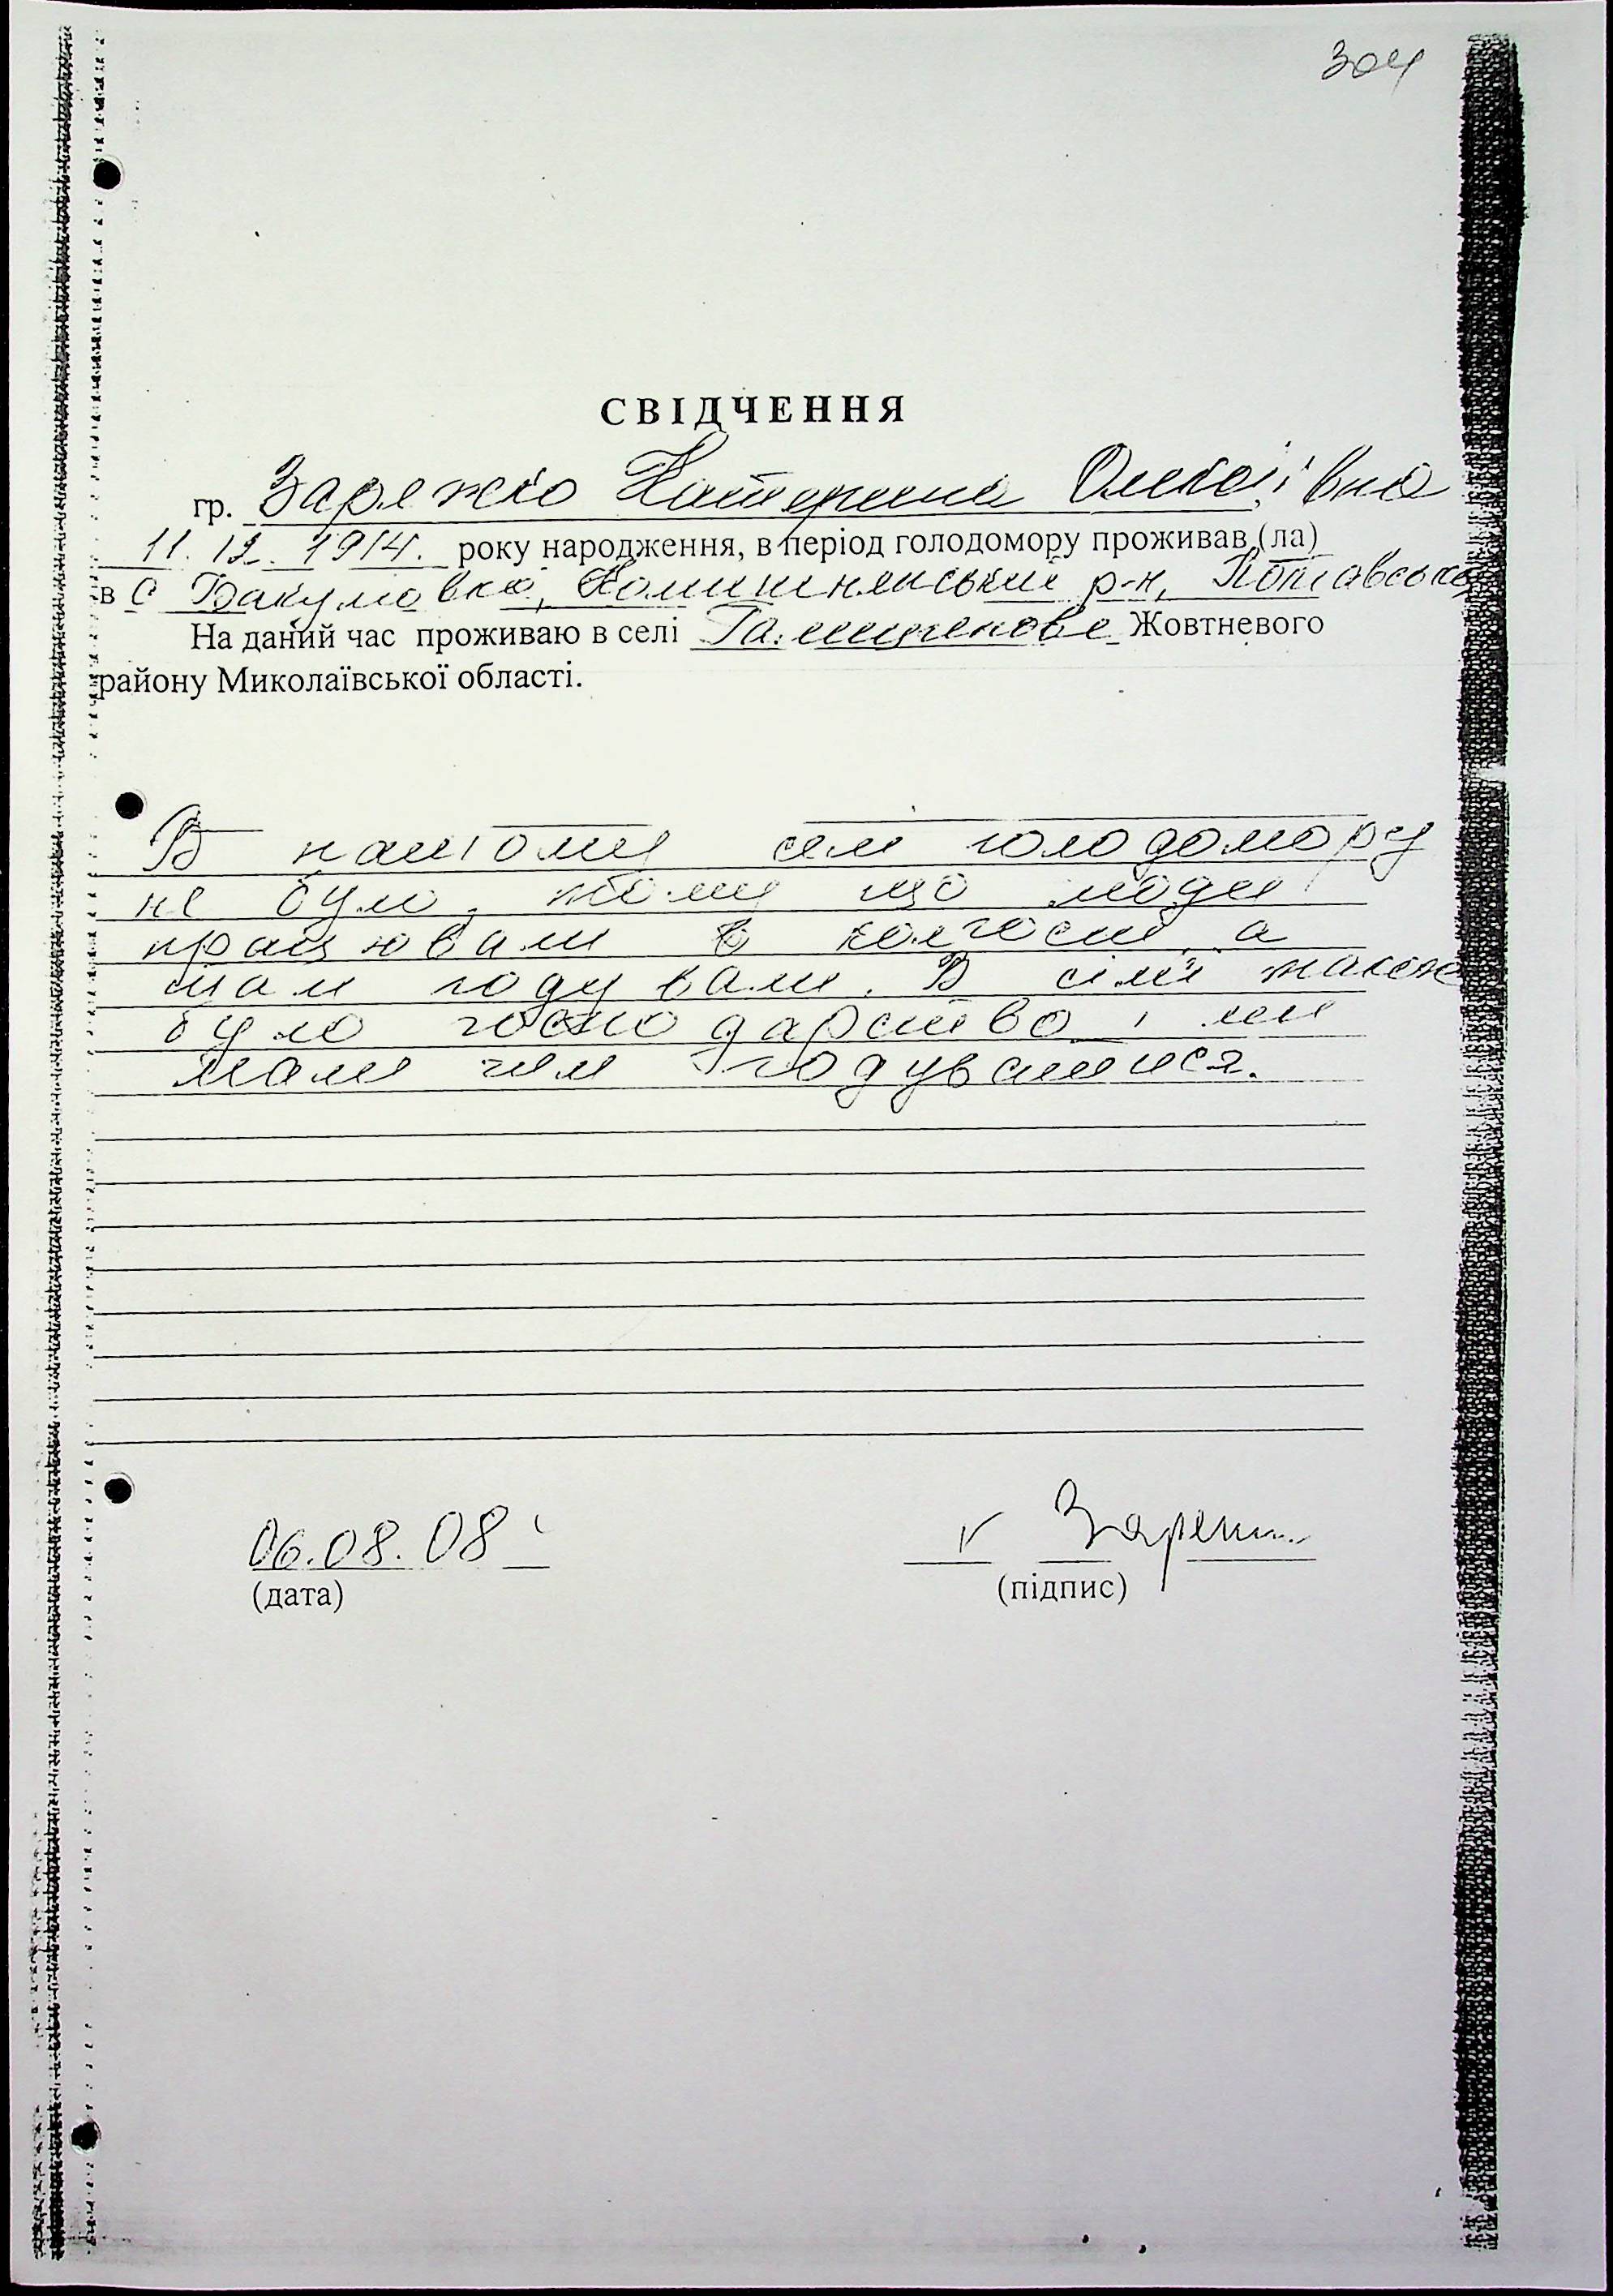 304
СВІДЧЕННЯ
гр. Катерина Олексіївна
11.12.1914. року народження, в період голодомору проживав (ла)
в с Бакумовка, Комишнянський р-н, Полтавська
На даний час проживаю в селі Галицинове Жовтневого
району Миколаївської області.
В нашому селі голодомору
не було, тому що люди
працювали в колгоспі, а
там годували. В сім'ї також
було господарство і ми
мали чим годуватися.
06.08.08
(дата) (підпис)